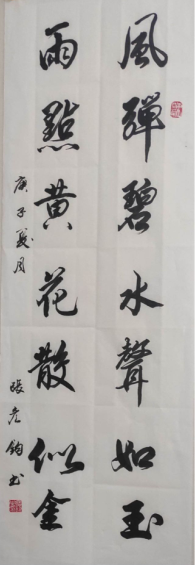 風彈碧水聲如玉
雨點黃花散似金
庚子夏月
張彥鈞书